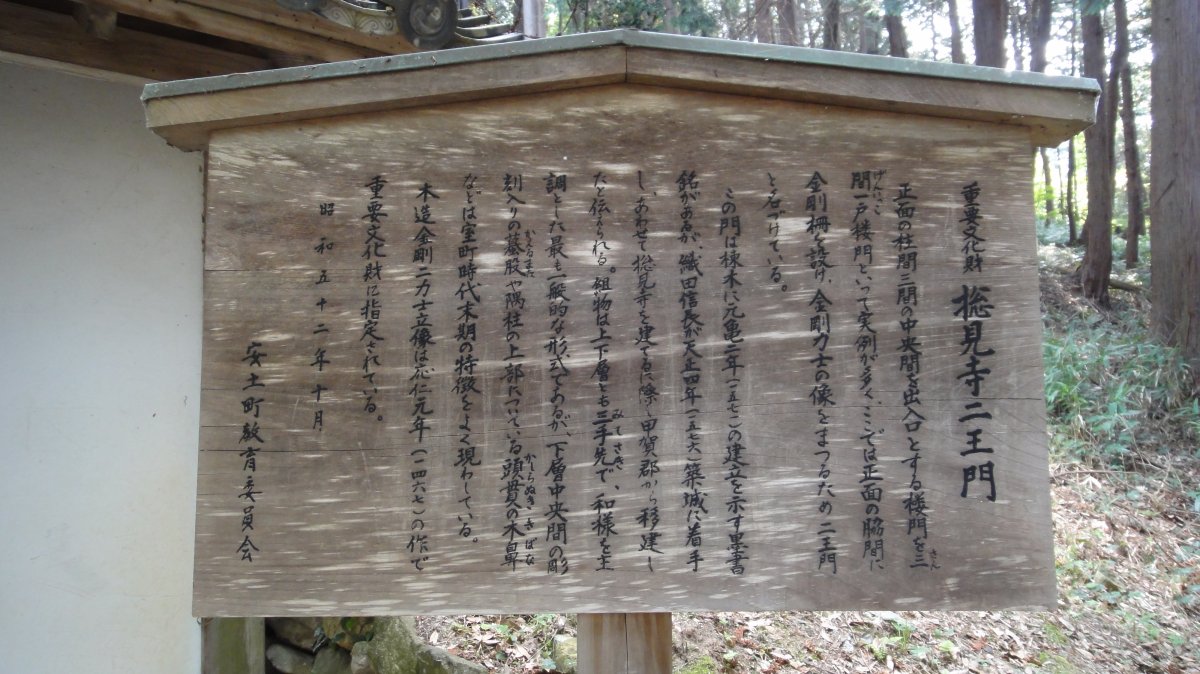 重要文化財 摠見寺二王門
正面の柱間三間の中央間を出入口とする楼門を三
間一戸楼門といって実例が多く、ここでは正面の脇間に
金剛柵を設け、金剛力士の像をまつるため二王門
と名づけている。
この門は棟木に元亀二年(一五七一)の建立を示す墨書
銘があるが、織田信長が天正四年(一五七六)築城に着手
し、あわせて摠見寺を建てるに際し甲賀郡から移建し
たと伝えられる。組物は上下層とも三手先で、和様を主
調とした最も一般的な形式であるが、下層中央間の彫
刻入りの蟇股や隅柱の上部についている頭貫の木鼻
などは室町時代末期の特徴をよく現わしている。
木造金剛二力士立像は応仁元年(一四六七)の作で
重要文化財に指定されている。
昭和五十二年十月
安土町教育委員会